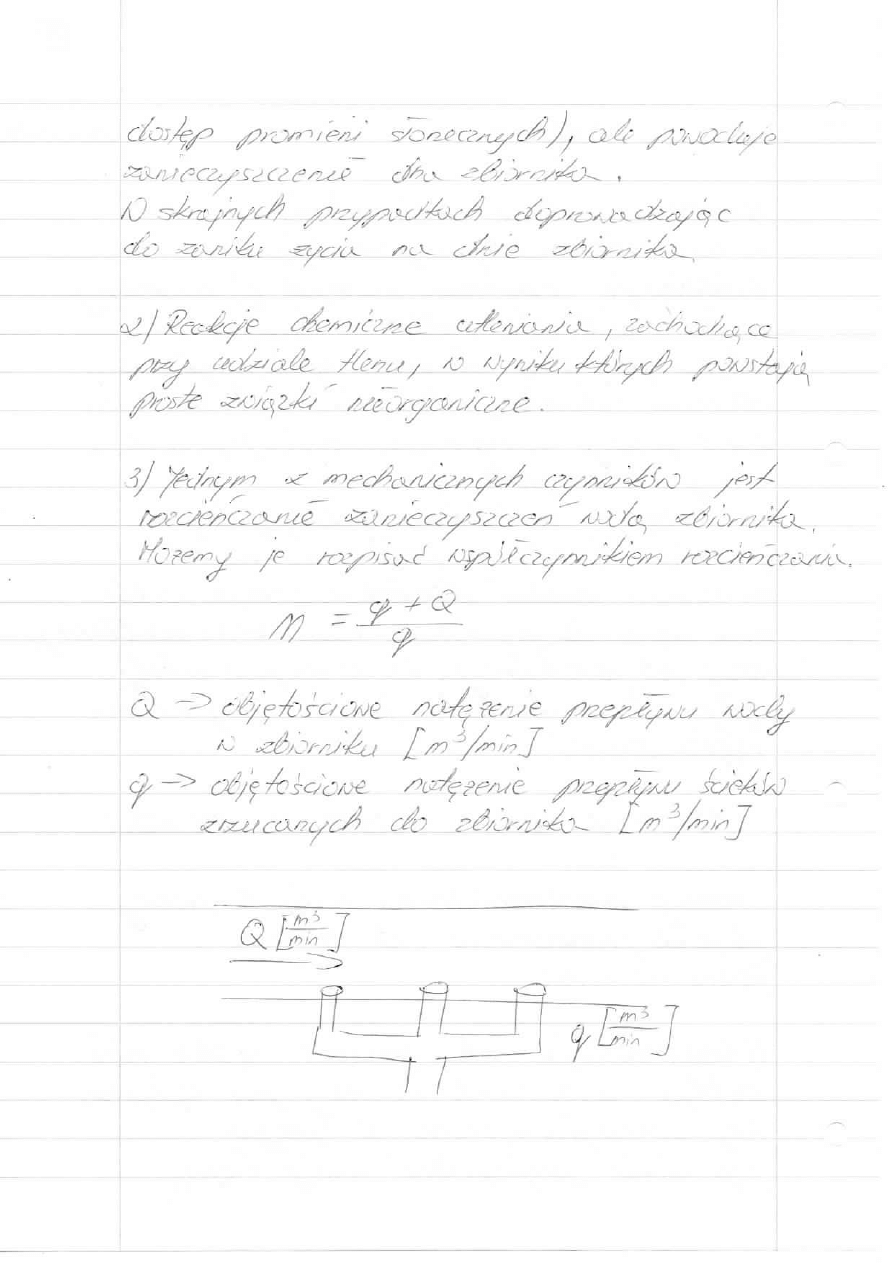 dostęp promieni słonecznych), ale powoduje
zanieczyszczenie dna zbiornika.
W skrajnych przypadkach doprowadzając
do zaniku życia na dnie zbiornika.
2) Reakcje chemiczne utleniania, zachodzące
przy udziale tlenu, w wyniku których powstają
proste związki nieorganiczne.
3) Jednym z mechanicznych czynników jest
rozcieńczanie zanieczyszczeń wodą zbiornika.
Możemy je rozpisać współczynnikiem rozcieńczania.
n = (q + Q) / q
Q → objętościowe natężenie przepływu wody
w zbiorniku [m³/min]
q → objętościowe natężenie przepływu ścieków
zrzucanych do zbiornika [m³/min]
Q [m³/min]
q [m³/min]